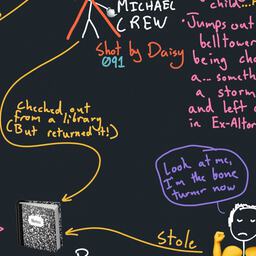 MICHAEL
CREW
Shot by Daisy
091
child...
• Jumps out
belltower
being cha
a... someth
a storm
and left a
in Ex-Altior
Checked out
from a library
(But returned it!)
Look at me,
I'm the bone
turner now
Stole